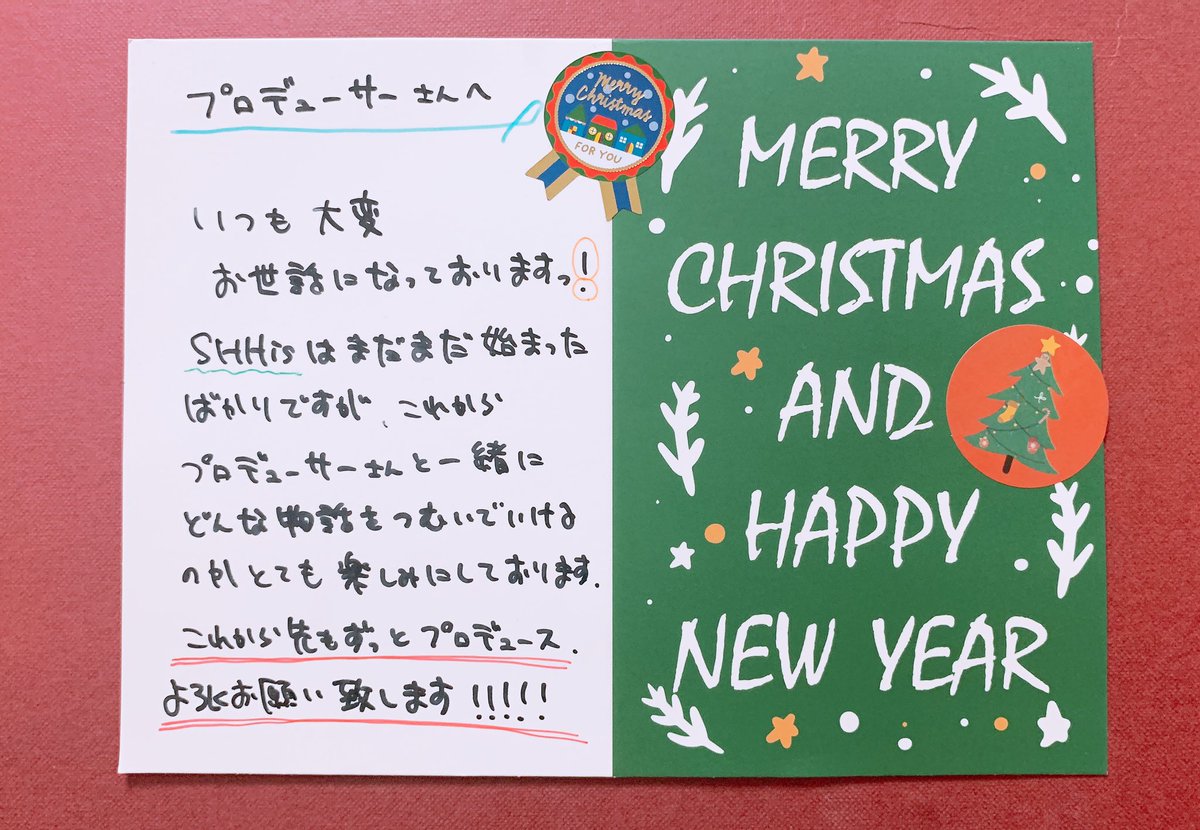 プロデューサーさんへ
いつも大変
お世話になっておりますっ!
SHHisはまだまだ始まった
ばかりですが、これから
プロデューサーさんと一緒に
どんな物語をつむいでいける
のかとても楽しみにしております.
これから先もずっとプロデュース.
よろしくお願い致します!!!!!
Merry
Christmas
FOR YOU
MERRY
CHRISTMAS
AND
HAPPY
NEW YEAR